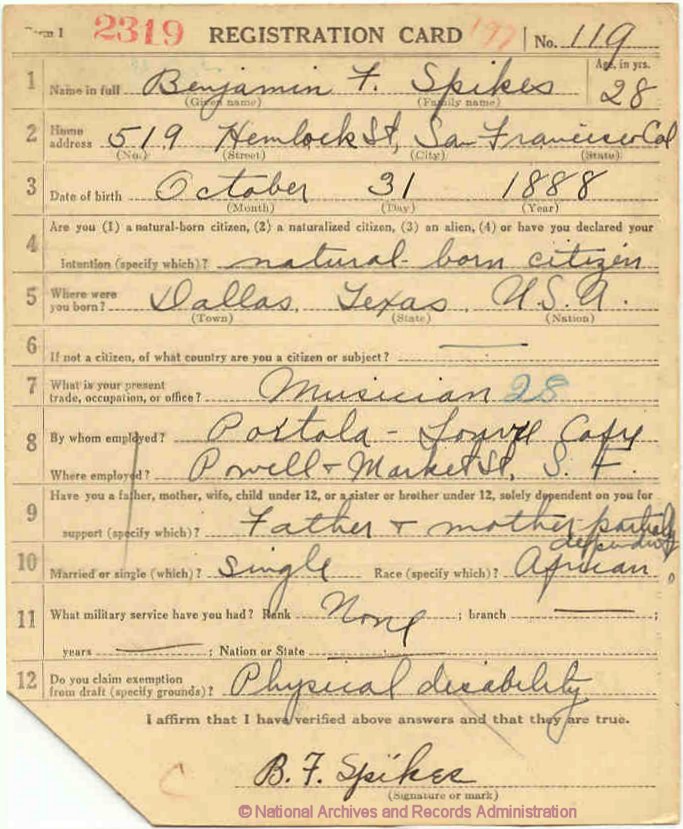 Form 1 2319 REGISTRATION CARD 177 No. 119
1 Name in full Benjamin F. Spikes Age, in yrs. 28
(Given name) (Family name)
2 Home address 519 Hemlock St, San Francisco Cal
(No.) (Street) (City) (State)
3 Date of birth October 31 1888
(Month) (Day) (Year)
4 Are you (1) a natural-born citizen, (2) a naturalized citizen, (3) an alien, (4) or have you declared your
intention (specify which)? natural-born citizen
5 Where were you born? Dallas, Texas, U.S.A.
(Town) (State) (Nation)
6 If not a citizen, of what country are you a citizen or subject?
7 What is your present trade, occupation, or office? Musician 28
8 By whom employed? Portola - Louvre Cafe
Where employed? Powell & Market St, S. F.
9 Have you a father, mother, wife, child under 12, or a sister or brother under 12, solely dependent on you for
support (specify which)? Father & mother partially dependent
10 Married or single (which)? Single Race (specify which)? African
11 What military service have you had? Rank None ; branch ;
years ; Nation or State
12 Do you claim exemption from draft (specify grounds)? Physical disability
I affirm that I have verified above answers and that they are true.
B. F. Spikes
(Signature or mark)
© National Archives and Records Administration